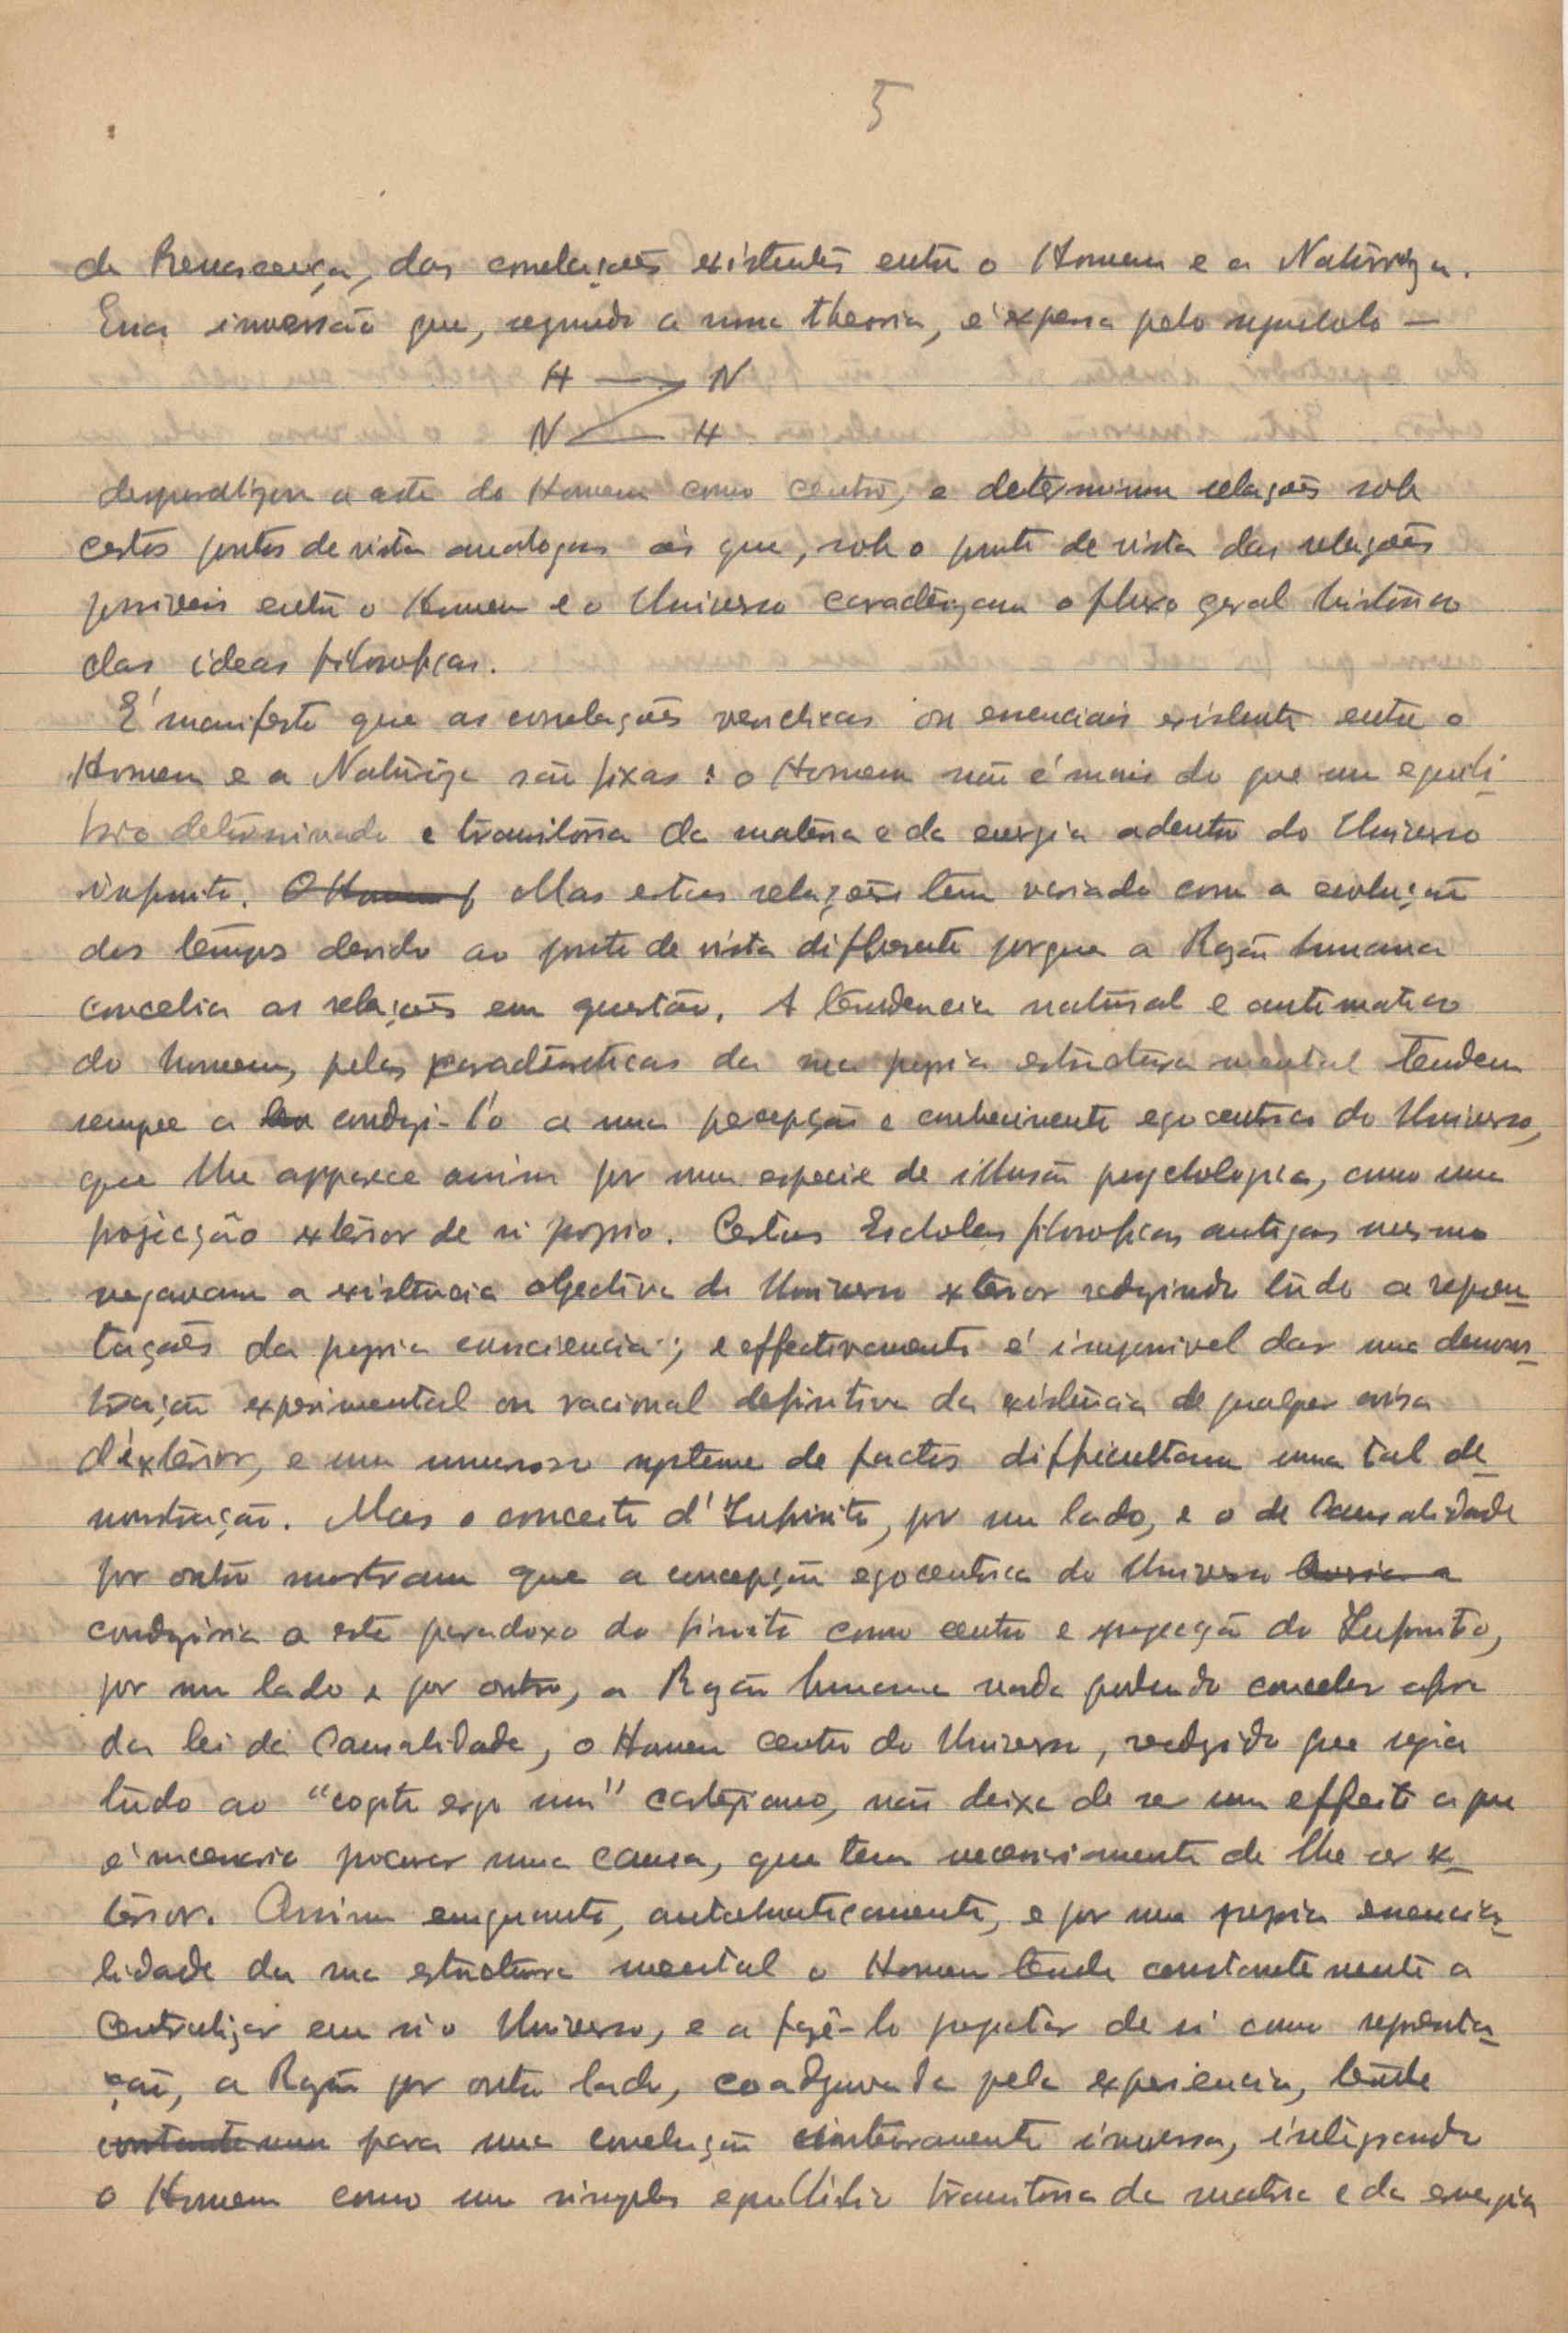 5
da Renascença, das correlações existentes entre o Homem e a Natureza.
Essa inversão que, segundo a uma theoria, é expressa pelo symbolo —
H → N
N ← H
a arte do Homem como centro, e determinou relações sob
certos pontos de vista analogas ás que, sob o ponto de vista das relações
possiveis entre o Homem e o Universo caracterizam o fluxo geral historico
das ideas filosoficas.
É manifesto que as correlações veridicas ou essenciais existente entre o
Homem e a Natureza são fixas: o Homem não é mais do que um equili-
brio determinado e transitorio da materia e da energia adentro do Universo
infinito. O Homem Mas estas relações têm variado com a evolução
dos tempos devido ao ponto de vista differente porque a Razão humana
concebia as relações em questão. A tendencia natural e automatica
do homem, pelas caracteristicas da sua propria estructura mental tendem
sempre a conduzi-l'o a uma percepção e conhecimento egocentrico do Universo,
que lhe apparece assim por uma especie de illusão psychologica, como uma
projecção exterior de si proprio. Certas Escholas filosoficas antigas mesmo
negavam a existencia objectiva do Universo exterior reduzindo tudo a represen-
tações da propria consciencia; e effectivamente é impossivel dar uma demons-
tração experimental ou racional definitiva da existencia de qualquer coisa
d'exterior, e um numeroso systema de factos difficultam uma tal de-
monstração. Mas o conceito d'Infinito, por um lado, e o de Causalidade
por outro mostram que a concepção egocentrica do Universo levaria a
conduziria a este paradoxo do finito como centro e projecção do Infinito,
por um lado e por outro, a Razão humana nada podendo conceber afora
da lei da Causalidade, o Homem centro do Universo, reduzido que seja
tudo ao "cogito ergo sum" cartesiano, não deixa de ser um effeito a que
é necessario procurar uma causa, que tem necessariamente de lhe ser ex-
terior. Assim emquanto, automaticamente, e por uma propria essencia-
lidade da sua estructura mental o Homem tende constantemente a
centralizar em si o Universo, e a fazê-lo projectar de si como representa-
ção, a Razão por outro lado, coadjuvada pela experiencia, tende
constantemen para uma correlação inteiramente inversa, integrando
o Homem como um simples equilibrio transitorio da materia e da energia